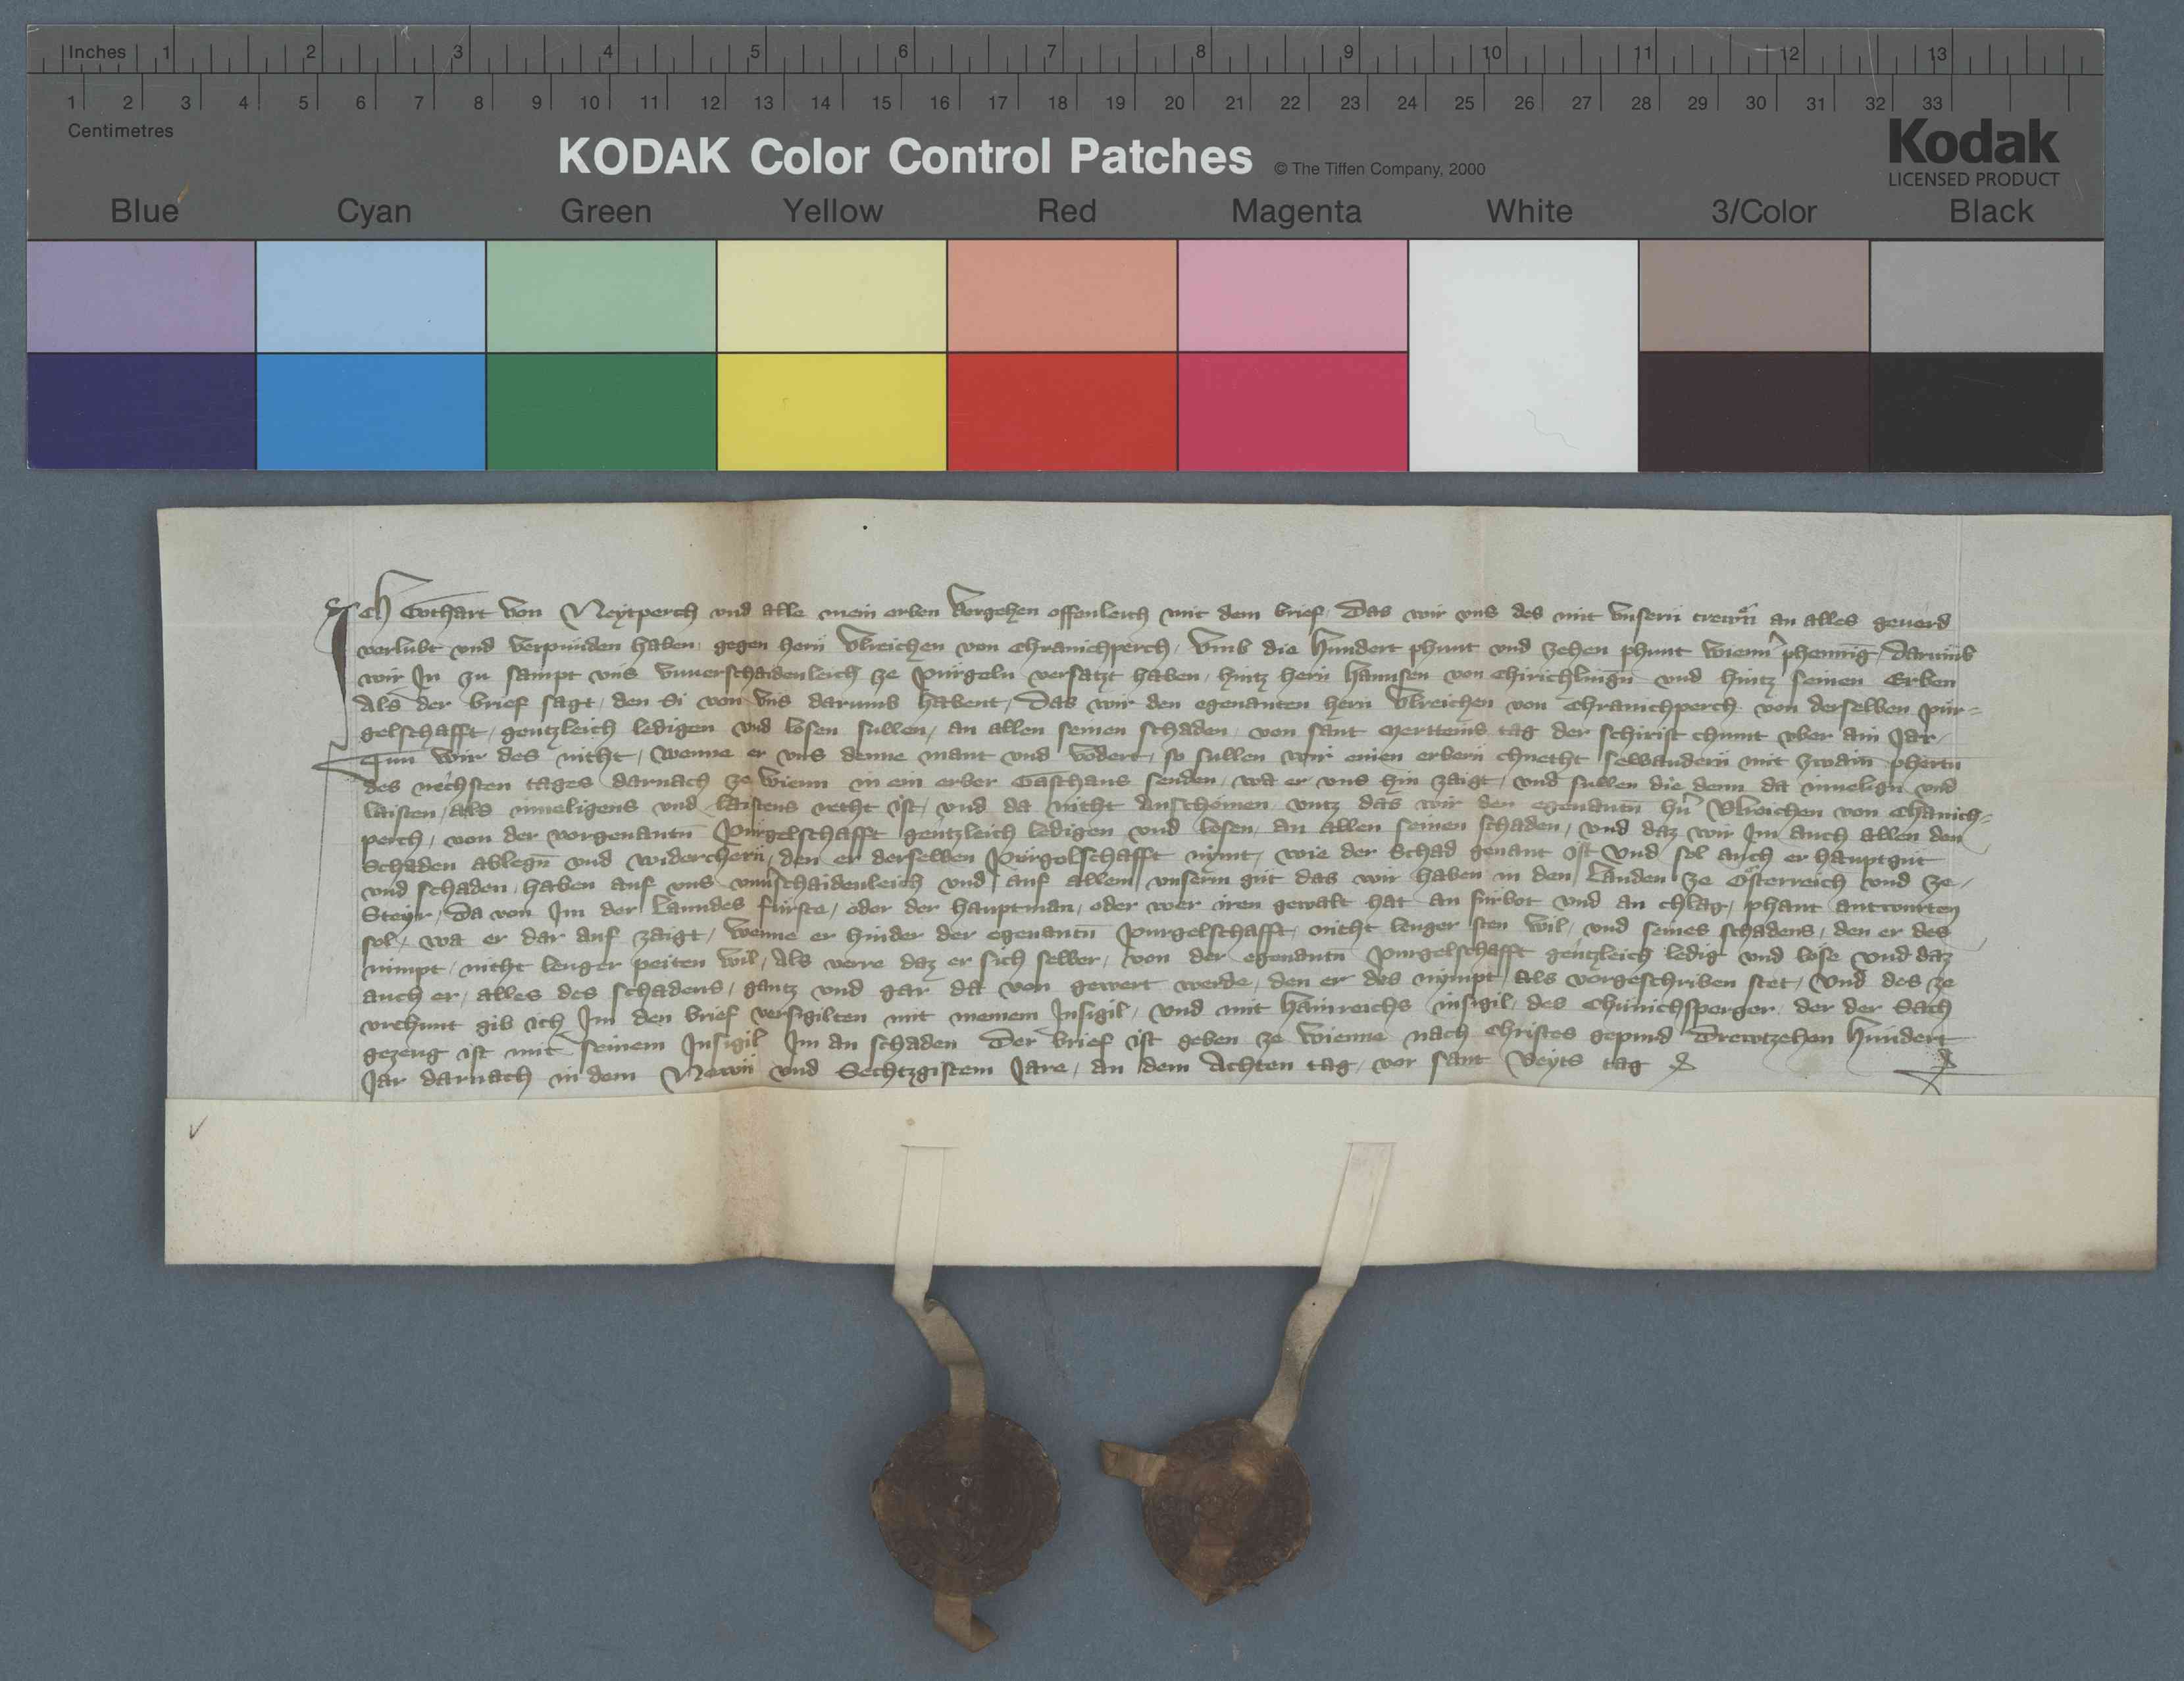 Inches 1 2 3 4 5 6 7 8 9 10 11 12 13
1 2 3 4 5 6 7 8 9 10 11 12 13 14 15 16 17 18 19 20 21 22 23 24 25 26 27 28 29 30 31 32 33
Centimetres
KODAK Color Control Patches © The Tiffen Company, 2000
Kodak
LICENSED PRODUCT
Blue Cyan Green Yellow Red Magenta White 3/Color Black
Ich Gothart von Neytperch vnd alle mein erben vergehen offenleich mit dem brief, Das wir vns des mit vnsern trewn an alles geuerd
verlubt vnd verpunden haben, gegen hern Vlreichen von Chranichperch, Vmb die Hundert phunt vnd zehen phunt wienn phennig, darumb
wir In zu sampt vns vnuerschaidenleich ze purgeln versatzt haben, hintz hern Hannsen von Chirichlingn vnd hintz seinen Erben
Als der brief sagt, den Si von vns darumb habent, Das wir den egenanten hern Vlreichen von Chranichperch von derselben pur=
gelschafft, gentzleich ledigen vnd losen sullen, an allen seinen schaden, von sant Mertteins tag der schirist chumt vber ain Jar,
Tun wir des nicht, Wenne er vns denne mant vnd vodert, so sullen wir einen erbern chnecht selbandern mit zwain phertn
des nechsten tages darnach ze wienn in ein erber Gasthaus senden, wa er vns hin zaigt, vnd sullen die denn da innelign vnd
laisten, als inneligens vnd laistens recht ist, vnd da nicht auschomen vntz das wir den egenantn hn Vlreichen von Chranich=
perch, von der vorgenantn Purgelschafft gentzleich ledigen vnd losen, an allen seinen schaden, vnd daz wir Im auch allen den
Schaden ablegn vnd widerchern, den er derselben Purgelschafft nymt, wie der Schad genant ist Vnd sol auch er hauptgut
vnd schaden, haben auf vns vnuerschaidenleich vnd auf allem vnserm gut das wir haben in den Landen ze Osterreich vnd ze,
Steyr, Da von Im der Lanndes furste, oder der hauptman, oder wer iren gewalt hat an furbot vnd an chlag, phant antwurten
sol, wa er dar auf zaigt, Wenne er hinder der egenantn Purgelschafft, nicht lenger sten wil, vnd seines schadens, den er des
nimpt, nicht lenger peiten wil, Als verre daz er sich selber, von der egenantn Purgelschafft gentzleich ledig vnd lose vnd daz
auch er, alles des schadens, gantz vnd gar da von gewert werde, den er des nympt, Als vorgeschriben stet, Vnd des ze
vrchunt gib ich Im den brief versigilten mit meinem Insigil, vnd mit Hainreichs insigil, des Chunichsperger, der der Sach
gezeug ist mit seinem Insigil Im an schaden Der brief ist geben ze Wienne nach Christes gepurd Drewtzehen Hundert
Jar darnach in dem Newn vnd Sechtzgistem Jare, an dem Achten tag, vor sant Veyts tag